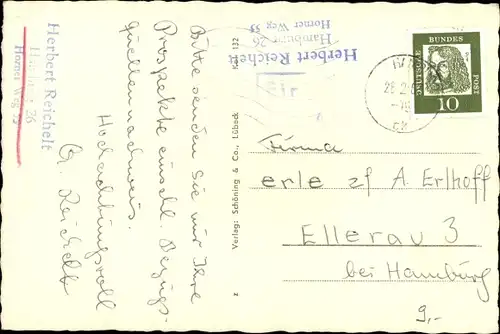 Herbert Reichelt
Hamburg 26
Horner Weg 55
Bitte senden Sie mir Ihre
Prospekte einschl. Bezugs-
quellennachweis.
Hochachtungsvoll
Reichelt
Herbert Reichelt
Hamburg 26
Horner Weg 55
132
Verlag: Schöning & Co., Lübeck
z
DEUTSCHE
BUNDES
POST
10
Firma
erle zf A. Erlhoff
Ellerau 3
bei Hamburg
9,-